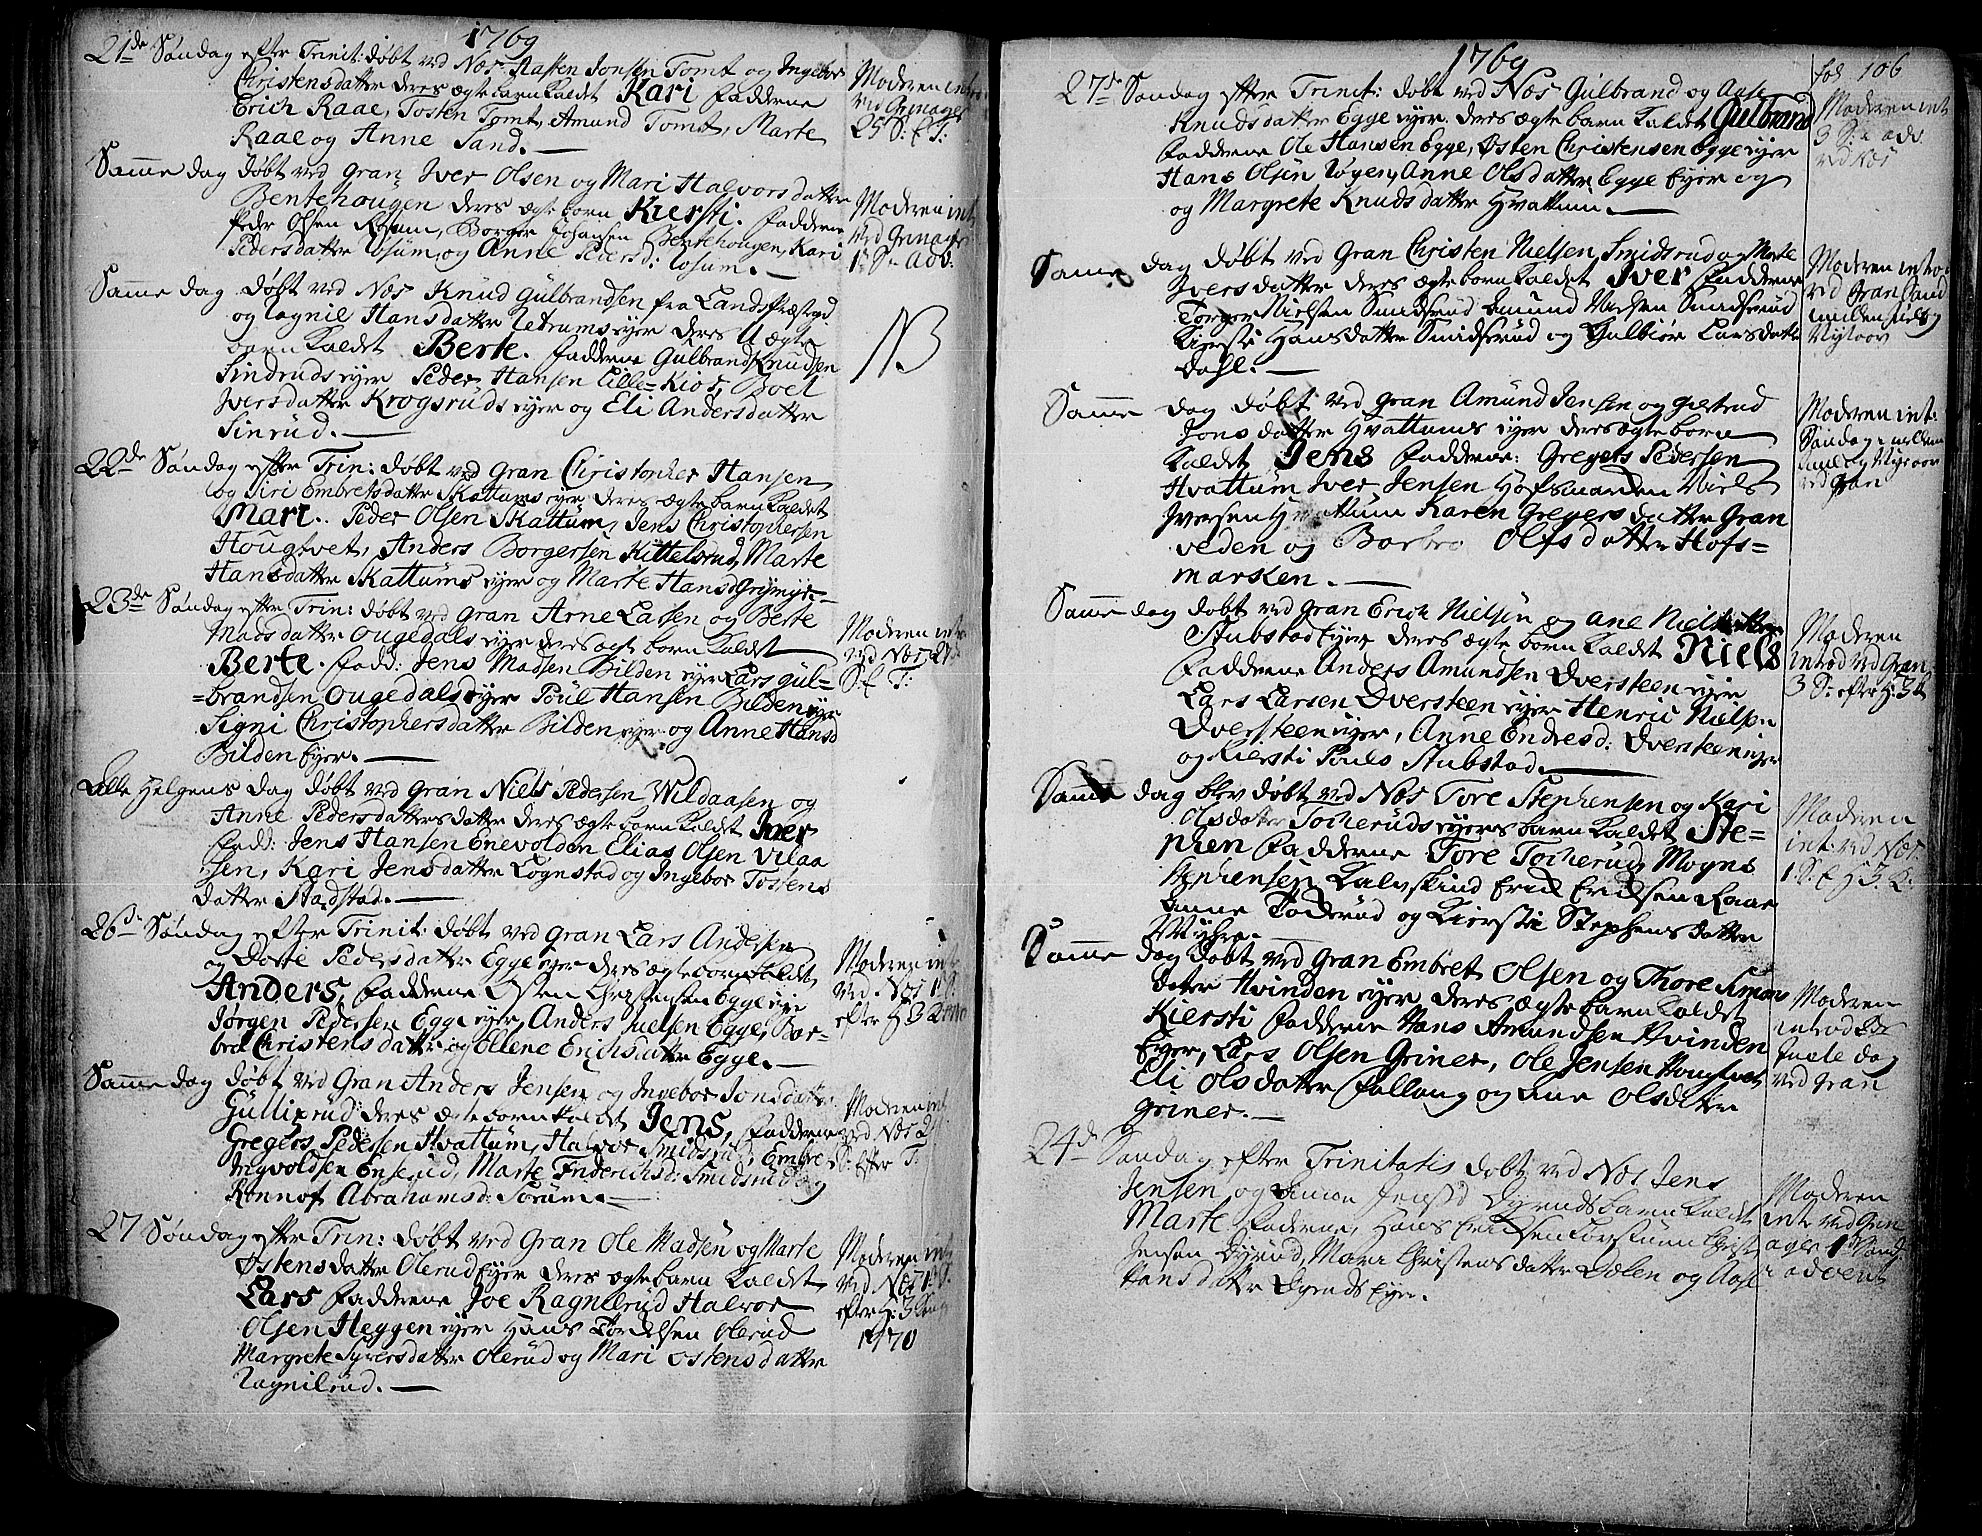 1769
21de Søndag efter Trinit: døbt ved Næs Aasten Jonsen Tomt og Ingebor
Christensdatter deres ægte barn kaldet Kari Fadderne
Erich Raae, Tosten Tomt, Amund Tomt, Marte
Raae og Anne Sand.
Moderen intro
ved Grinager
25 S: e T:
Samme dag døbt ved Gran Iver Olsen og Mari Halvorsdatter
Bentehougen deres ægte barn Kiersti. Fadderne
Peder Olsen Rosum, Borger Johansen Bentehougen, Kari
Pedersdatter Rosum og Anne Pedersd: Rosum.
Moderen int
ved Grinager
1 S: Adv:
Samme dag døbt ved Næs Knud Gulbrandsen fra Lands Præstegd
og Ragnil Hansdatter eyer deres Uægte
barn kaldet Berte. Fadderne Gulbrand Knudsen
Sindruds eyer Peder Hansen Lille-Kios, Boel
Iversdatter Krogsruds eyer og Eli Andersdatter
Sinrud.
NB
22de Søndag efter Trin: døbt ved Gran Christopher Hansen
og Siri Embretsdatter Skattums eyer deres ægte barn kaldet
Mari. Peder Olsen Skattum, Jens Christophersen
Hougtvet, Anders Borgersen Kittelsrud, Marte
Hansdatter Skattums eyer og Marte Hansd Grymyr.
23de Søndag efter Trin: døbt ved Gran Arne Larsen og Berte
Madsdatter Ougedals eyer deres ægte barn kaldet
Berte. Fadd: Jens Madsen Bilden eyer Lars Gul=
=brandsen Ougedals eyer Poul Hansen Bilden eyer
Signi Christophersdatter Bilden eyer og Anne Hansd
Bilden Eyer.
Moderen intr
ved Næs 27de
S: e T:
Alle Helgens Dag døbt ved Gran Niels Pedersen Wildaasen og
Anne Pedersdatter deres ægte barn kaldet Iver
Fadd: Jens Hansen Enevolden Elias Olsen Vilaa
sen, Kari Jensdatter Lognstad og Ingebor Tostens
datter Stadstad.
26de Søndag efter Trinit: døbt ved Gran Lars Andersen
og Dorte Pedersdatter Egge eyer deres ægte barn kaldet
Anders, Fadderne Østen Christensen Egge eye
Jørgen Pedersen Egge eyer, Anders Juelsen Egge, Bar=
bra Christensdatter og Ellene Erichsdatter Egge.
Moderen intr
ved Næs 1 S.
efter H 3 Konge
Samme dag døbt ved Gran Anders Jensen og Ingebor Jonsdatter
Gullixrud deres ægte barn kaldet Jens, Fadderne
Gregers Pedersen Hvattum, Halvor Smidsrud, Embret
Ingvoldsen Enserud, Marte Friderichsd: Smidsrud og
Ronnof Abrahamsd: Sorum.
Moderen int
ved Næs 27
S: Efter T:
27 Søndag efter Trin: døbt ved Gran Ole Madsen og Marte
Østensdatter Olerud Eyer deres ægte barn kaldet
Lars Fadderne Joe Ragnilrud Halvor
Olsen Heggen eyer Hans Tordelsen Olerud
Margrete Syversdatter Olerud og Mari Ostensdatter
Ragnilrud.
Moderen int
ved Næs 1 S.
efter H: 3 Kong
1770
1769
fol 106
27de Søndag efter Trinit: døbt ved Næs Gulbrand og Aase
Knudsdatter Egge eyer deres ægte barn kaldet Gulbrand
Fadderne Ole Hansen Egge, Østen Christensen Egge eyer
Hans Olsen Røyen, Anne Olsdatter Egge Eyer og
og Margrete Knudsdatter Hvattum.
Moderen int
3 S: i adv.
ved Næs
Samme dag døbt ved Gran Christen Nielsen Smidsrud og Marte
Iversdatter deres ægte barn kaldet Iver Fadderne
Torger Nielsen Smidsrud Amund Nielsen Smidsrud
Kiersti Hansdatter Smidsrud og Gulbiør Larsdatter
Dahl.
Moderen introd
ved Gran Sønd
mellem Juel og
Nytaar
Samme dag døbt ved Gran Amund Jensen og Giertrud
Jonsdatter Hvattums eyer deres ægte barn
kaldet Jens Fadderne: Gregers Pedersen
Hvattum Iver Jensen Hofsmarchen Niels
Iversen Hvattum Karen Gregersdatter Gran
veden og Barbro Olfsdatter Hofs=
marken.
Moderen int:
Søndag mellem
Juul og Nytaar
ved Gran
Samme dag døbt ved Gran Erich Nielsen og Ane Nielsdatter
Stubstad Eyer deres ægte barn kaldet Niels
Fadderne Anders Amundsen Dversteen eyer
Lars Larsen Dversteen eyer Henric Nielsen
Dversteen eyer, Anne Endresd: Dversteen eyer
og Kiersti Pouls Stubstad.
Moderen
introd ved Gran
3 S: efter H: 3 K
Samme dag blev døbt ved Næs Tore Stephensen og Kari
Olsdatter Tocheruds eyers barn kaldet Ste=
phen Fadderne Tore Tocherud, Mogns
Stephensen Kalvskind Erik Eriksen Raae
Anne Tokerud og Kiersti Stephensdatter
Myhre.
Moderen
int: ved Næs
1. S. e H 3. K:
Samme dag døbt ved Gran Embret Olsen og Thore Simons
dater Hvinden eyer deres ægte barn kaldet
Kiersti Fadderne Hans Amundsen Hvinden
Eyer, Lars Olsen Griner, Ole Jensen Hougtvet
Eli Olsdatter Fallang og Ane Olsdatter
Griner.
Moderen
introd 3de
Juele dag
ved Gran
24de Søndag efter Trinitatis døbt ved Næs Jens
Jensen og Jensd Dyruds barn kaldet
Marte Fadderne, Hans Erichsen Christ
Jensen Dyrud, Mari Christensdatter Dolen og Aase
Hansdatter Dyruds Eyer.
Moderen
int: ved Grin
ager 1 Sønd
i advent